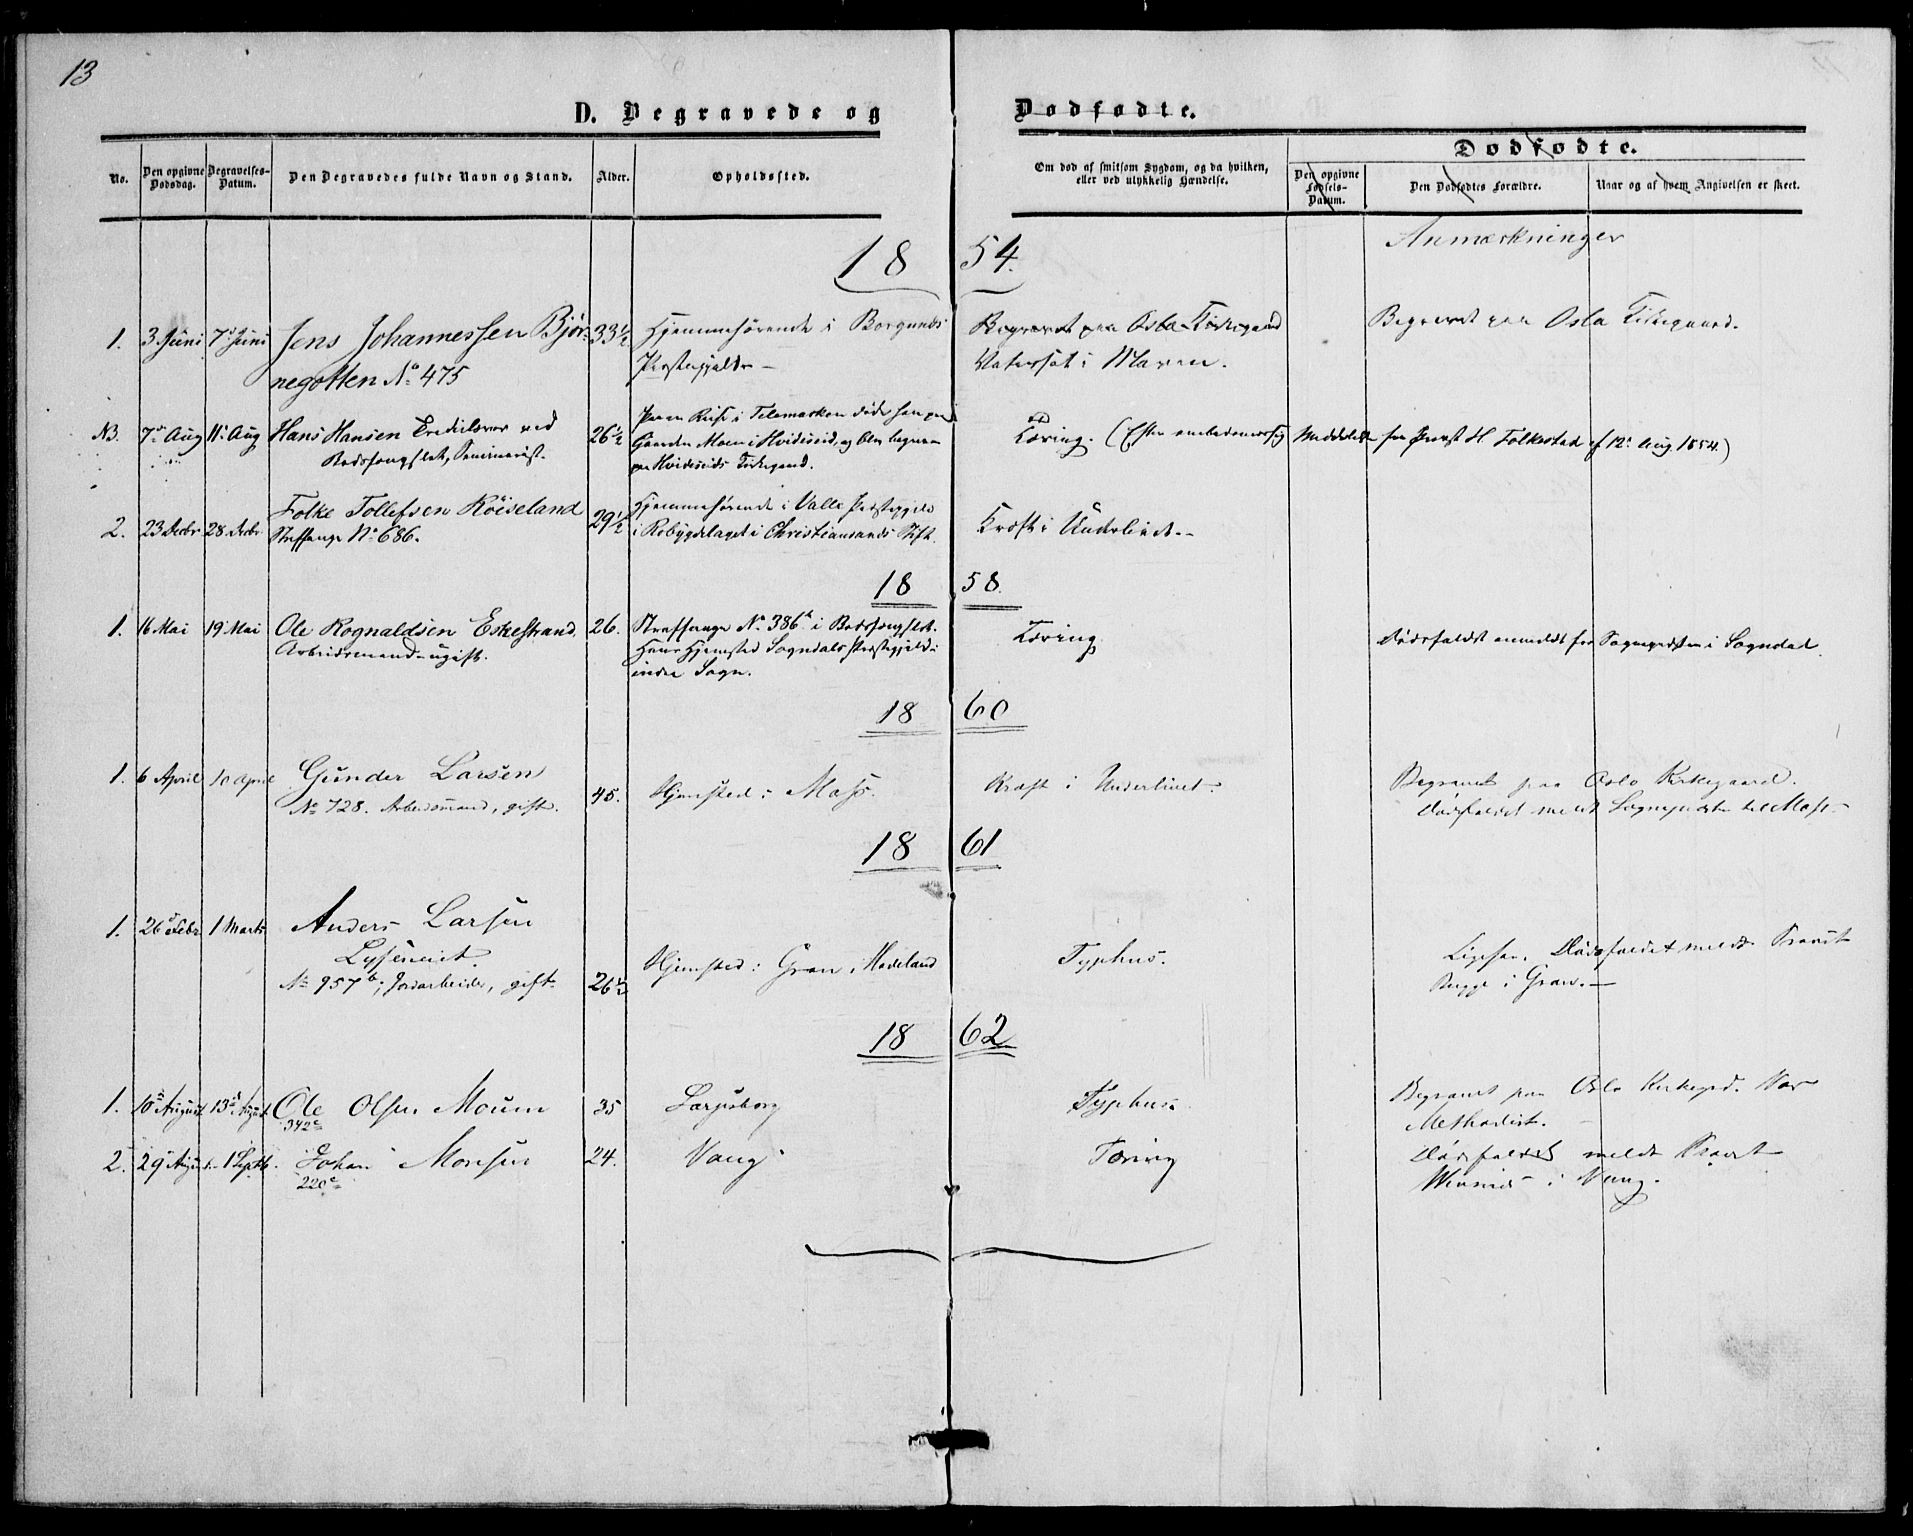 13
D. Begravede og Dødfødte.
No.
Den opgivne Dødsdag.
Begravelses-Datum.
Den Begravedes fulde Navn og Stand.
Alder.
Opholdssted.
Om død af smitsom Sygdom, og da hvilken, eller ved ulykkelig Hændelse.
Dødfødte.
Den opgivne Fødsels-Datum.
Den Dødfødtes Forældre.
Naar og af hvem Angivelsen er skeet.
Anmærkninger
1854.
1. 3 Juni 7 Juni Jens Johannessen Bjør- 33½ Hjemmehørende i Borgunds Begravet paa Oslo Kirkegaard Begravet paa Oslo Kirkegaard.
negotten No 475 Præstegjeld - Vatersot i Maven.
NB. 7 Aug 11 Aug Hans Hansen ved 26½ Paa en Reise i Telemarken døde han paa Tæring. (Efter Meddelelse fra Provst H. Folkestad af 12 Aug. 1854.)
Bodsfængslet, Seminarist. Gaarden Moen i Hvideseid, og blev begravet
paa Hvideseids Kirkegaard.
2. 23 Decbr 28 Decbr Folke Tollefsen Röiseland 29½ Hjemmehørende i Valle Præstegjeld Kræft i Underlivet.
Straffange No 686. i Robygdelaget i Christiansands Stift.
1858.
1. 16 Mai 19 Mai Ole Rognaldsen Eskestrand 26. Straffange No 386 i Bodsfængslet. Tæring Dødsfaldet anmeldt for Sognepræsten i Sogndal.
Arbeidsmand - ugift. Hans Hjemsted Sogndals Præstegjeld i
indre Sogn.
1860
1. 6 April 10 April Gunder Larsen 45. Hjemsted: Moss. Kræft i Underlivet. Begravet paa Oslo Kirkegaard.
No 728. Arbeidsmand, gift. Dødsfaldet meldt Sognepræsten til Moss.
1861
1. 26 Febr. 1 Marts Anders Larsen
Lyseneiet Hjemsted: Gran, Hadeland Typhus. Dødsfaldet meldt Provst
No 957 b; Jordarbeider, gift. 26½ Bugge i Gran. -
1862
1. 10 August 13 August Ole Olsen Moum 35 Sarpsborg Typhus. Begravet paa Oslo Kirkegrd. Var
342c Methodist.
2. 29 August 1 Septb. Johan Monsen 24. Vang Tæring Dødsfaldet meldt Provst
220c i Vang.